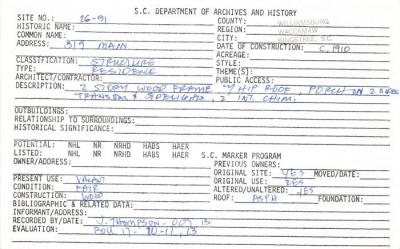 S.C. DEPARTMENT OF ARCHIVES AND HISTORY
SITE NO.: 26-91 COUNTY: WILLIAMSBURG
HISTORIC NAME: REGION: WACCAMAW
COMMON NAME: CITY: KINGSTREE, S.C.
ADDRESS: 319 MAIN DATE OF CONSTRUCTION: C. 1910
ACREAGE:
CLASSIFICATION: STRUCTURE STYLE:
TYPE: RESIDENCE THEME(S):
ARCHITECT/CONTRACTOR: PUBLIC ACCESS:
DESCRIPTION: 2 STORY WOOD FRAME W/ HIP ROOF, PORCH ON 2 SIDES
TRANSOM & SIDELIGHTS, 2 INT. CHIM.
OUTBUILDINGS:
RELATIONSHIP TO SURROUNDINGS:
HISTORICAL SIGNIFICANCE:
POTENTIAL: NHL NR NRHD HABS HAER
LISTED: NHL NR NRHD HABS HAER S.C. MARKER PROGRAM
OWNER/ADDRESS: PREVIOUS OWNERS:
ORIGINAL SITE: YES MOVED/DATE:
PRESENT USE: VACANT ORIGINAL USE: RES
CONDITION: FAIR ALTERED/UNALTERED: YES
CONSTRUCTION: WOOD ROOF: ASPH FOUNDATION:
BIBLIOGRAPHIC & RELATED DATA:
INFORMANT/ADDRESS:
RECORDED BY/DATE: J. THOMPSON - OCT 13
EVALUATION: ROLL 17 - 10-11, 13